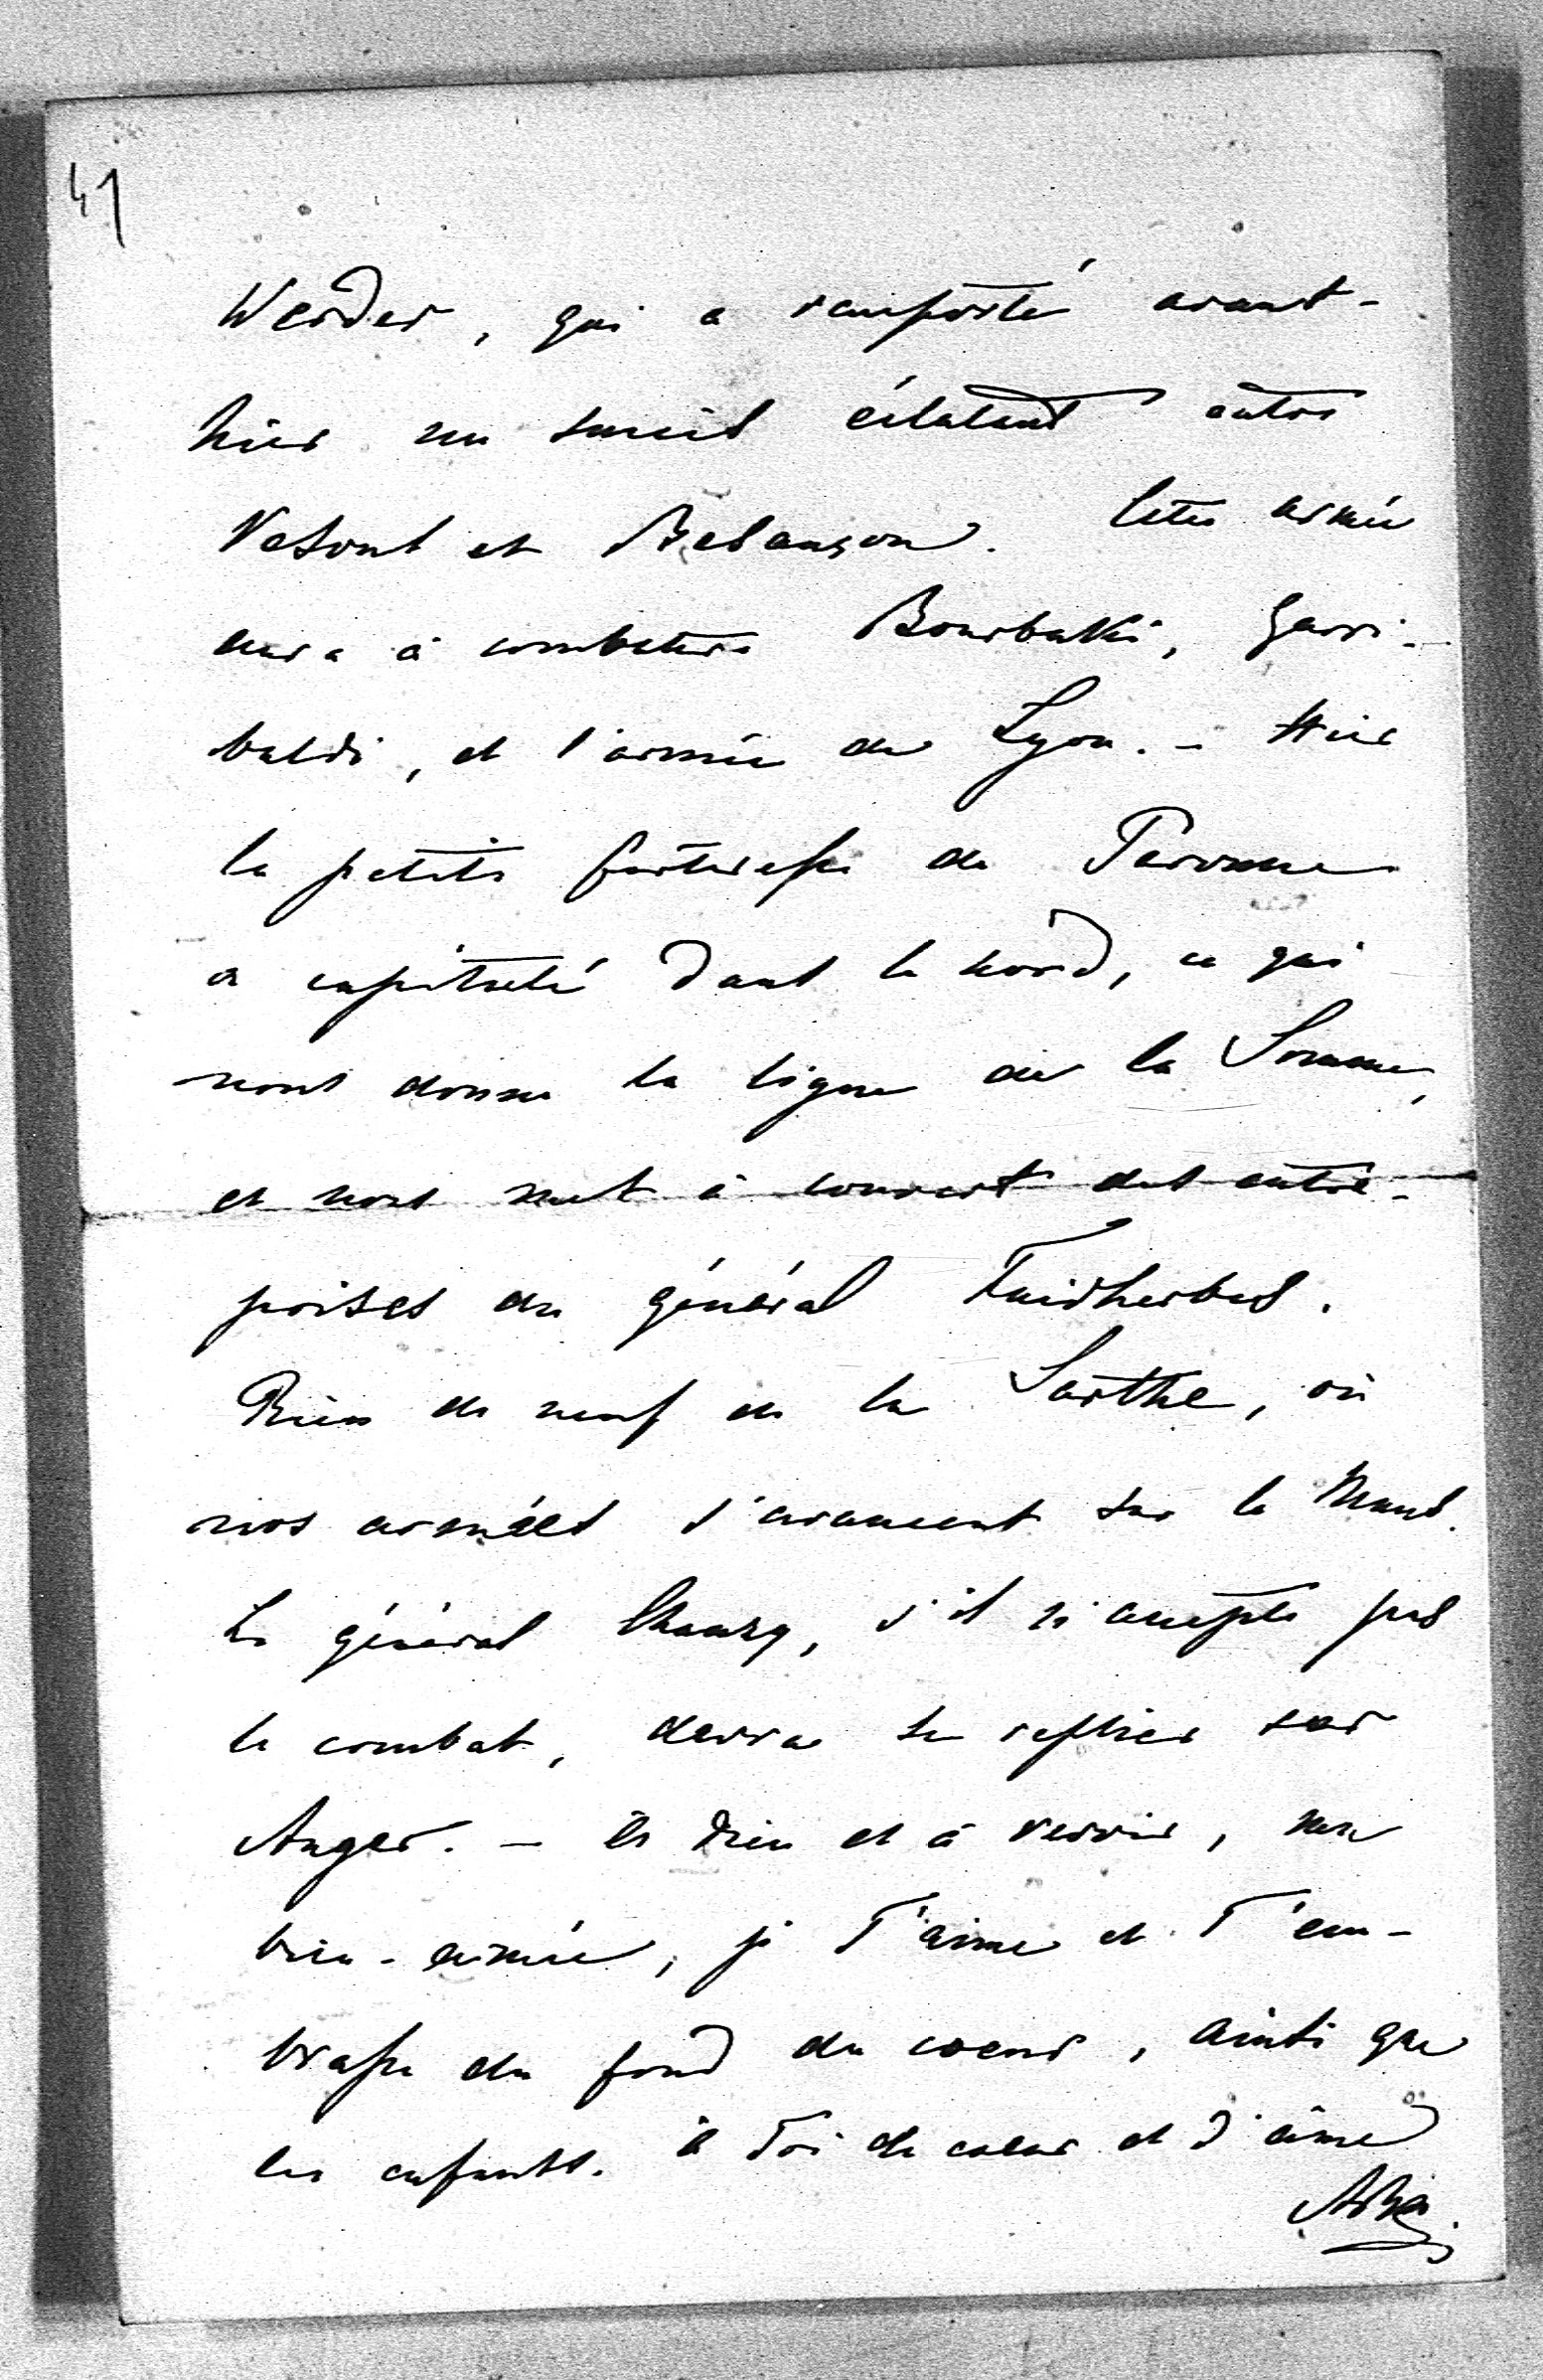 41
Werder, qui a remporté avant-
hier un succès éclatant entre
Vesoul et Besançon. Cette armée
aura à combattre Bourbaki, Garri-
baldi, et l'armée de Lyon. - Hier
la petite forteresse de Peronne
a capitulé dans le nord, ce qui
nous donne la ligne de la Somme,
et nous met à couvert des entre-
prises du général Faidherbes.
Rien de neuf de la Sarthe, où
nos armées s'avancent sur le Mans.
Le général Chanzy, s'il n'accepte pas
le combat, devra se replier sur
Anger. - à Dieu et à revoir, ma
bien-aimée, je T'aime et T'em-
brasse du fond du coeur, ainsi que
les enfants. à Toi de coeur et d'âme